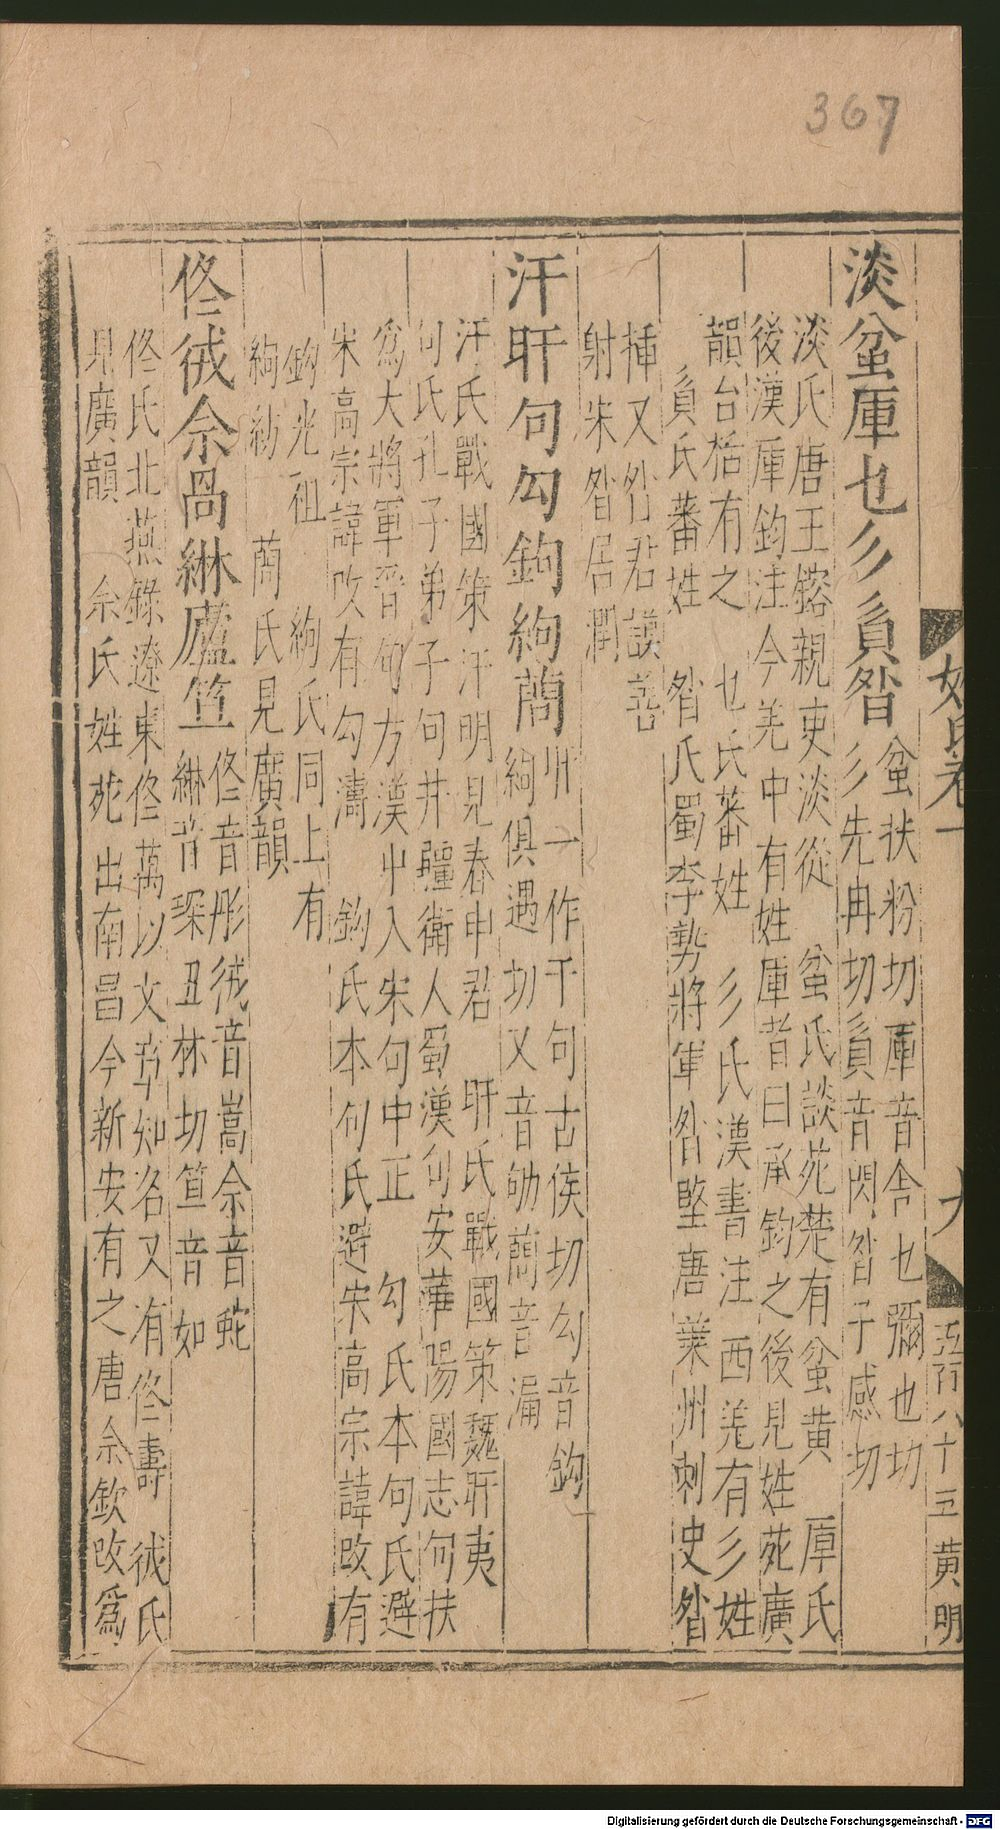 367
姓氏卷一
九
八十五 黄明
淡蚠厙乜彡貟昝
蚠扶粉切厙音舎乜彌也切
彡先冉切貟音閃昝子感切
淡氏唐王鎔親吏淡從 蚠氏談苑楚有蚠黄 厙氏
後漢厙鈞注今羌中有姓厙者曰承鈞之後見姓苑廣
韻台括有之 乜氏蕃姓 彡氏漢書注西羌有彡姓
貟氏蕃姓 昝氏蜀李勢將軍昝堅唐業州刺史昝
揷又昝君謨善
射朱昝居潤
汗盰句勾鉤絇藺
一作干句古侯切勾音鈎
絇俱遇切又音劬藺音漏
汗氏戰國策汗明見春申君 盰氏戰國策魏盰夷
句氏孔子弟子句井疆衛人蜀漢句安華陽國志句扶
爲大將軍晉句方漢中入宋句中正 勾氏本句氏避
宋高宗諱改有勾濤 鈎氏本句氏避宋高宗諱改有
鈎光祖 絇氏同上有
絇紡 藺氏見廣韻
佟㣉佘咼綝廬笪
佟音彤㣉音嵩佘音蛇
綝音琛丑林切笪音如
佟氏北燕錄遼東佟萬以文章知名又有佟壽 㣉氏
見廣韻 佘氏姓苑出南昌今新安有之唐佘欽改爲
Digitalisierung gefördert durch die Deutsche Forschungsgemeinschaft - DFG